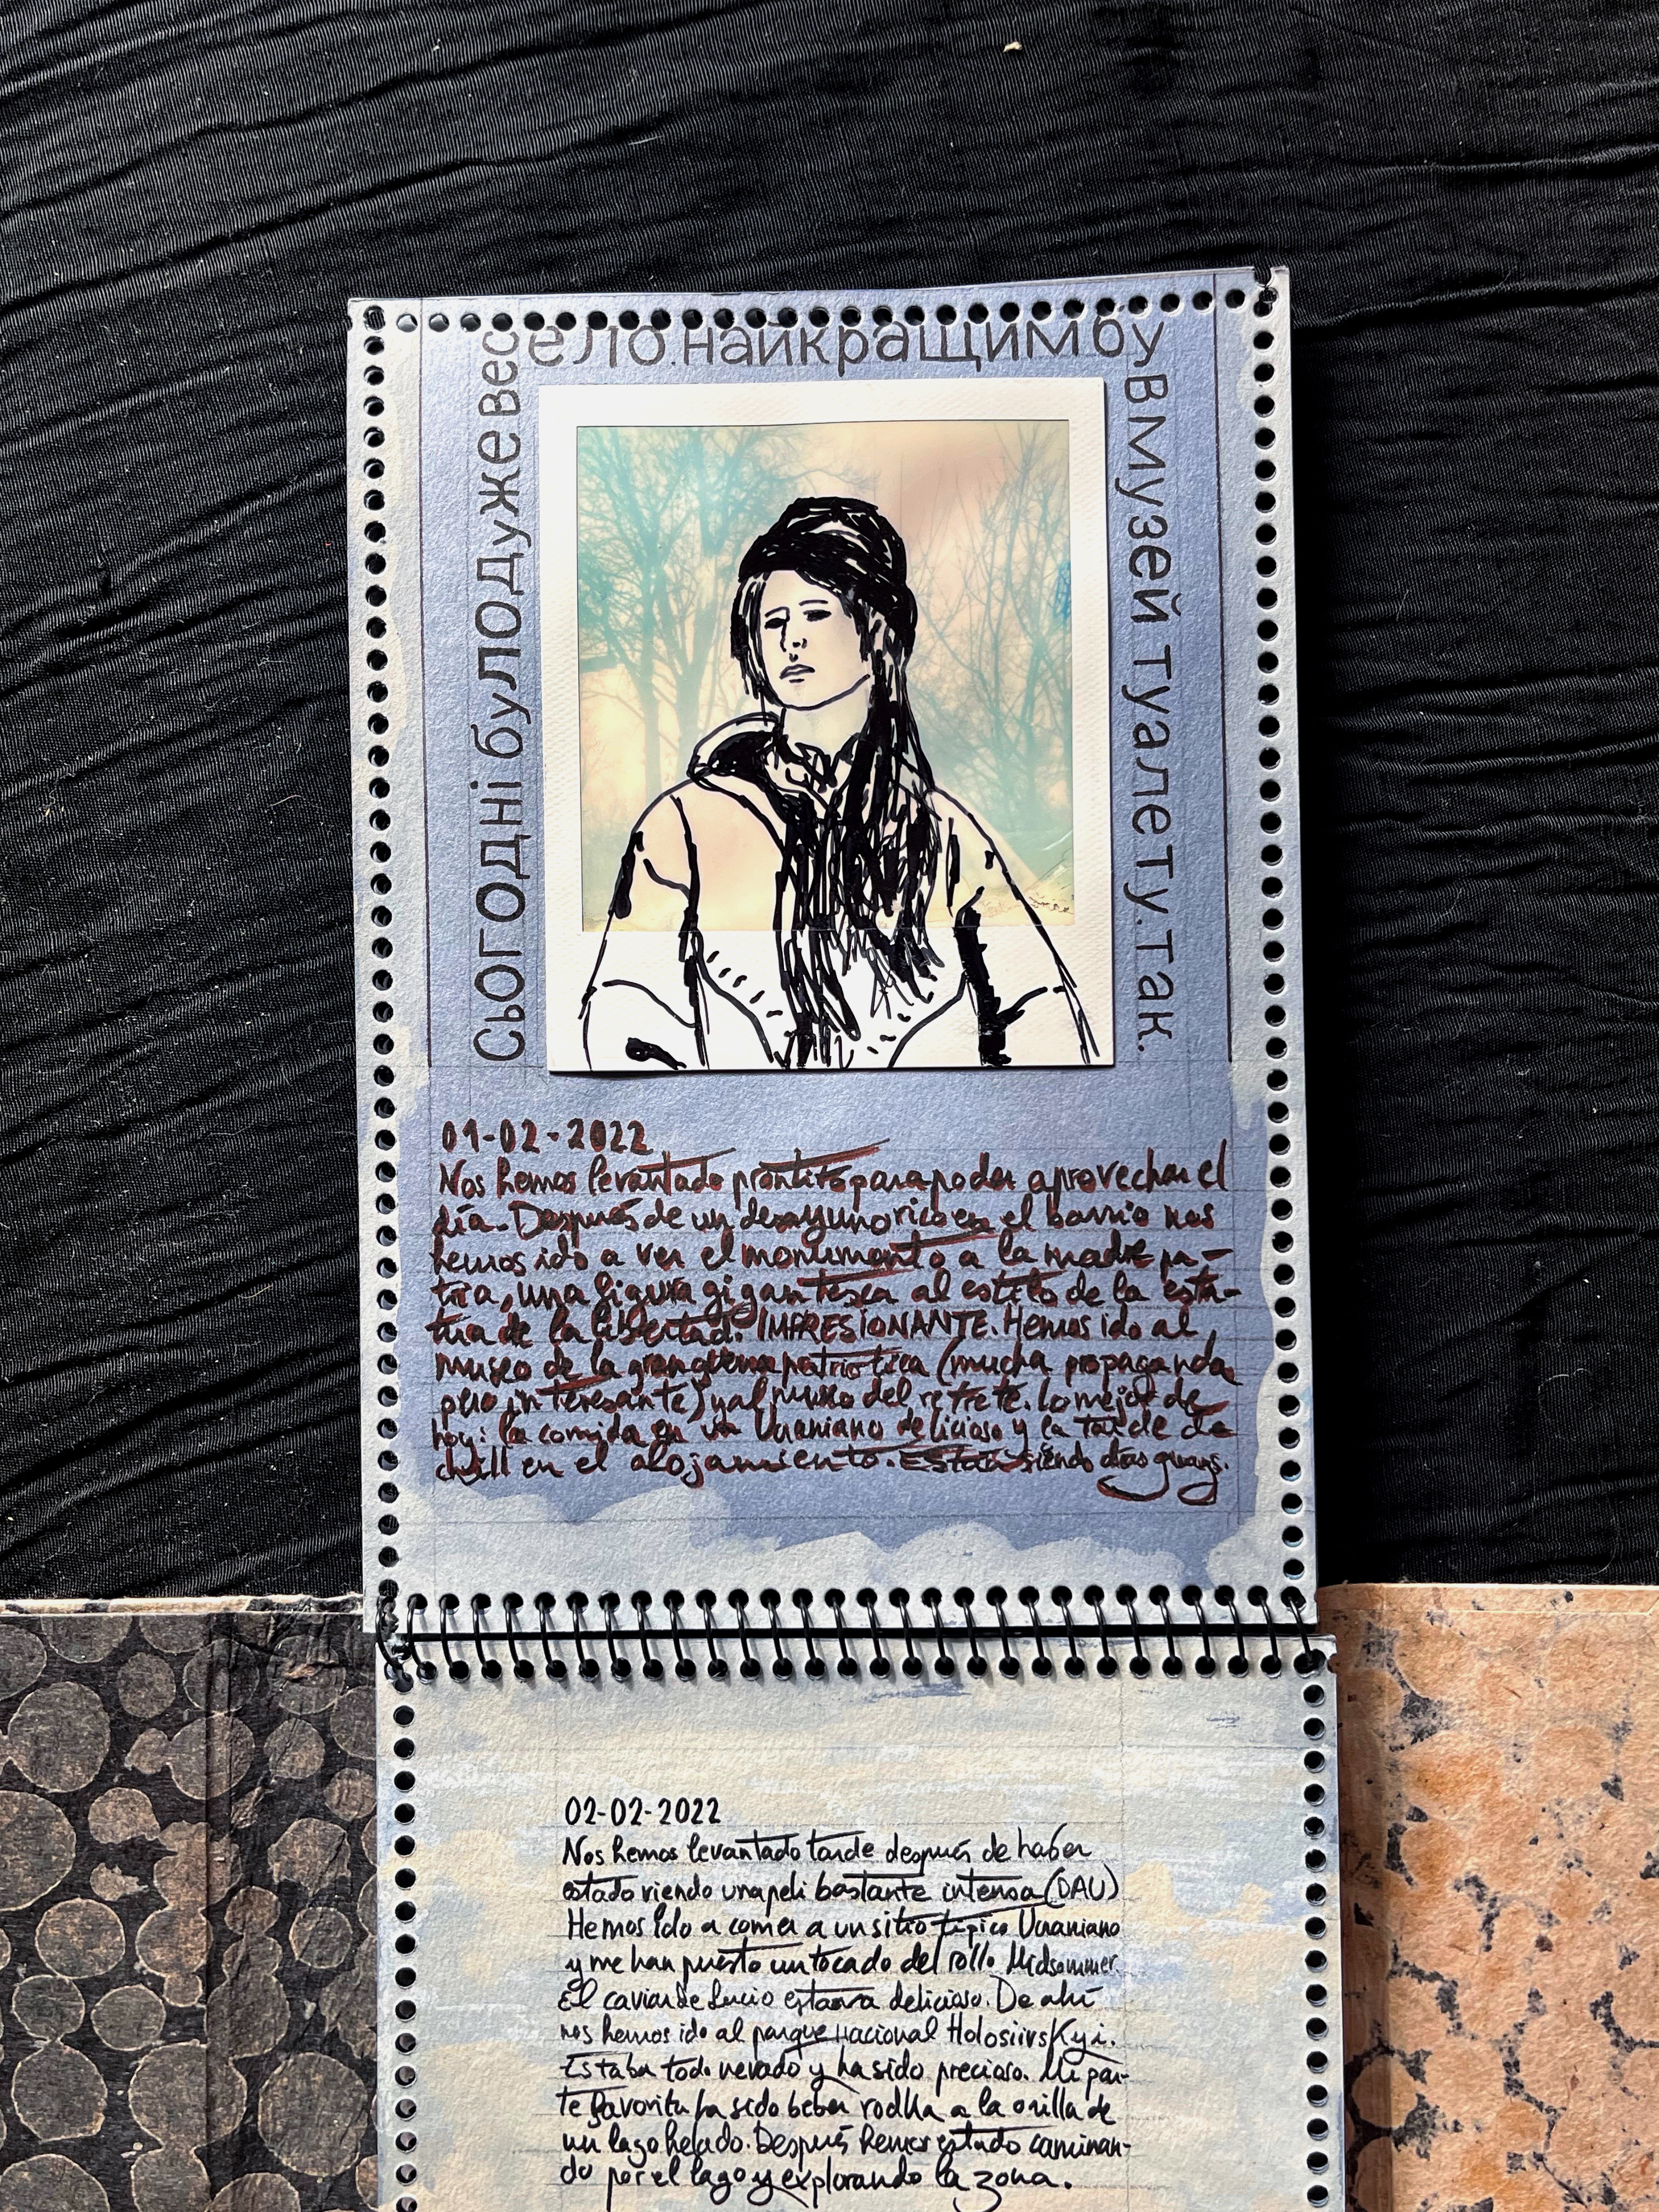 сьогодні було дуже весело. найкращим був музей туалету. так.
01-02-2022
Nos hemos levantado prontito para poder aprovechar el
día. Después de un desayuno rico en el barrio nos
hemos ido a ver el monumento a la madre pa-
tria, una figura gigantesca al estilo de la esta-
tua de la libertad. IMPRESIONANTE. Hemos ido al
museo de la gran guerra patriotica (mucha propaganda
pero interesante) y al museo del retrete. Lo mejor de
hoy: la comida en un Ucraniano delicioso y la tarde de
chill en el alojamiento. Están siendo días guays.
02-02-2022
Nos hemos levantado tarde después de haber
estado viendo una peli bastante intensa (DAU)
Hemos ido a comer a un sitio típico Ucraniano
y me han puesto un tocado del rollo Midsommer.
El caviar de Lucio estava delicioso. De ahí
nos hemos ido al parque nacional Holosiivskyi.
Estaba todo nevado y ha sido precioso. Mi par-
te favorita ha sido beber vodka a la orilla de
un lago helado. Después hemos estado caminan-
do por el lago y explorando la zona.